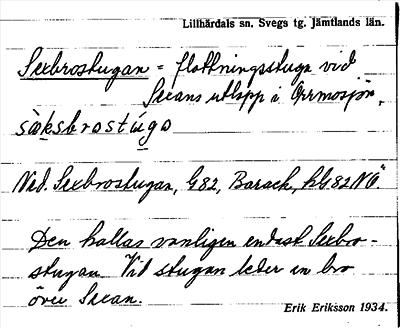 Lillhärdals sn. Svegs tg. Jämtlands län.
Sexbrostugan = flottningsstuga vid
Sexans utlopp i Orrmosjön,
sä̀ksbrostúgo
Ned. Sexbrostugan, G82, Barack, kG82NÖ.
Den kallas vanligen endast Sexbro-
stugan. Vid stugan leder en bro
över Sexan.
Erik Eriksson 1934.